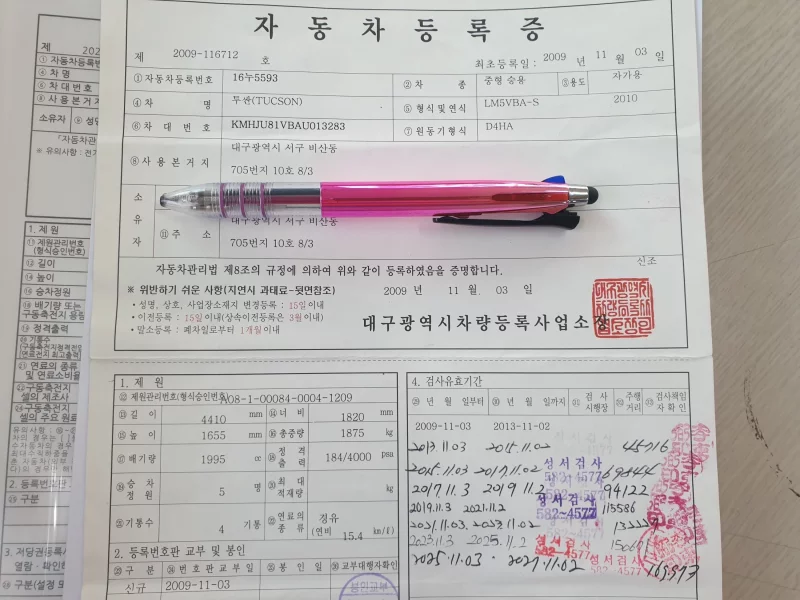 자동차등록증
제 2009-116712 호
최초등록일 : 2009 년 11 월 03 일
①자동차등록번호 16누5593 ②차 종 중형 승용 ③용도 자가용
④차 명 투싼(TUCSON) ⑤형식 및 연식 LM5VBA-S 2010
⑥차 대 번 호 KMHJU81VBAU013283 ⑦원동기형식 D4HA
⑧사 용 본 거 지 대구광역시 서구 비산동
705번지 10호 8/3
소
유
자
⑪주 소 대구광역시 서구 비산동
705번지 10호 8/3
자동차관리법 제8조의 규정에 의하여 위와 같이 등록하였음을 증명합니다.
신조
※ 위반하기 쉬운 사항(지연시 과태료-뒷면참조)
2009 년 11 월 03 일
• 성명, 상호, 사업장소재지 변경등록 : 15일이내
• 이전등록 : 15일이내(상속이전등록은 3월이내)
• 말소등록 : 폐차일로부터 1개월이내
대구광역시차량등록사업소장
1. 제 원
⑫제원관리번호(형식승인번호) A08-1-00084-0004-1209
⑬길 이 4410 mm ⑭너 비 1820 mm
⑮높 이 1655 mm ⑯총중량 1875 kg
⑰배기량 1995 cc ⑱정격출력 184/4000 psa
⑲승차정원 5 명 ⑳최대적재량 kg
㉑기통수 4 기통 ㉒연료의종류 경유
(연비 15.4 km/ℓ)
2. 등록번호판 교부 및 봉인
구 분 번호판교부일 봉 인 일 교부대행자확인
신규 2009-11-03
성민교부
4. 검사유효기간
년 월 일부터 년 월 일까지 검 사 시행장 주행거리 검사책임자확인
2009-11-03 2013-11-02
2013.11.03 2015.11.02 45716
2015.11.03 2017.11.02 69844
성서검사
582-4577
2017.11.3 2019.11.2 94122
성서검사
582-4577
2019.11.3 2021.11.2 115586
2021.11.03. 2023.11.02
2023.11.3 2025.11.2
성서검사
582-4577
2025.11.03 . 2027.11.02
제 202
①자동차등록번
④차 명
⑥차 대 번 호
⑧사 용 본 거 지
소유자
「자동차관
※ 유의사항 :
1. 제원
⑪제원관리번호
(형식승인번호)
⑫길이
⑭높이
⑯승차정원
⑱배기량 또는
구동축전지 용량
⑲정격출력
연료의 종류
및 연료소비율
구동축전지
셀의 제조사
구동축전지
셀의 주요 원료
2. 등록번호판
구분
3. 저당권등록
열람ㆍ확인하
구분(설정 또